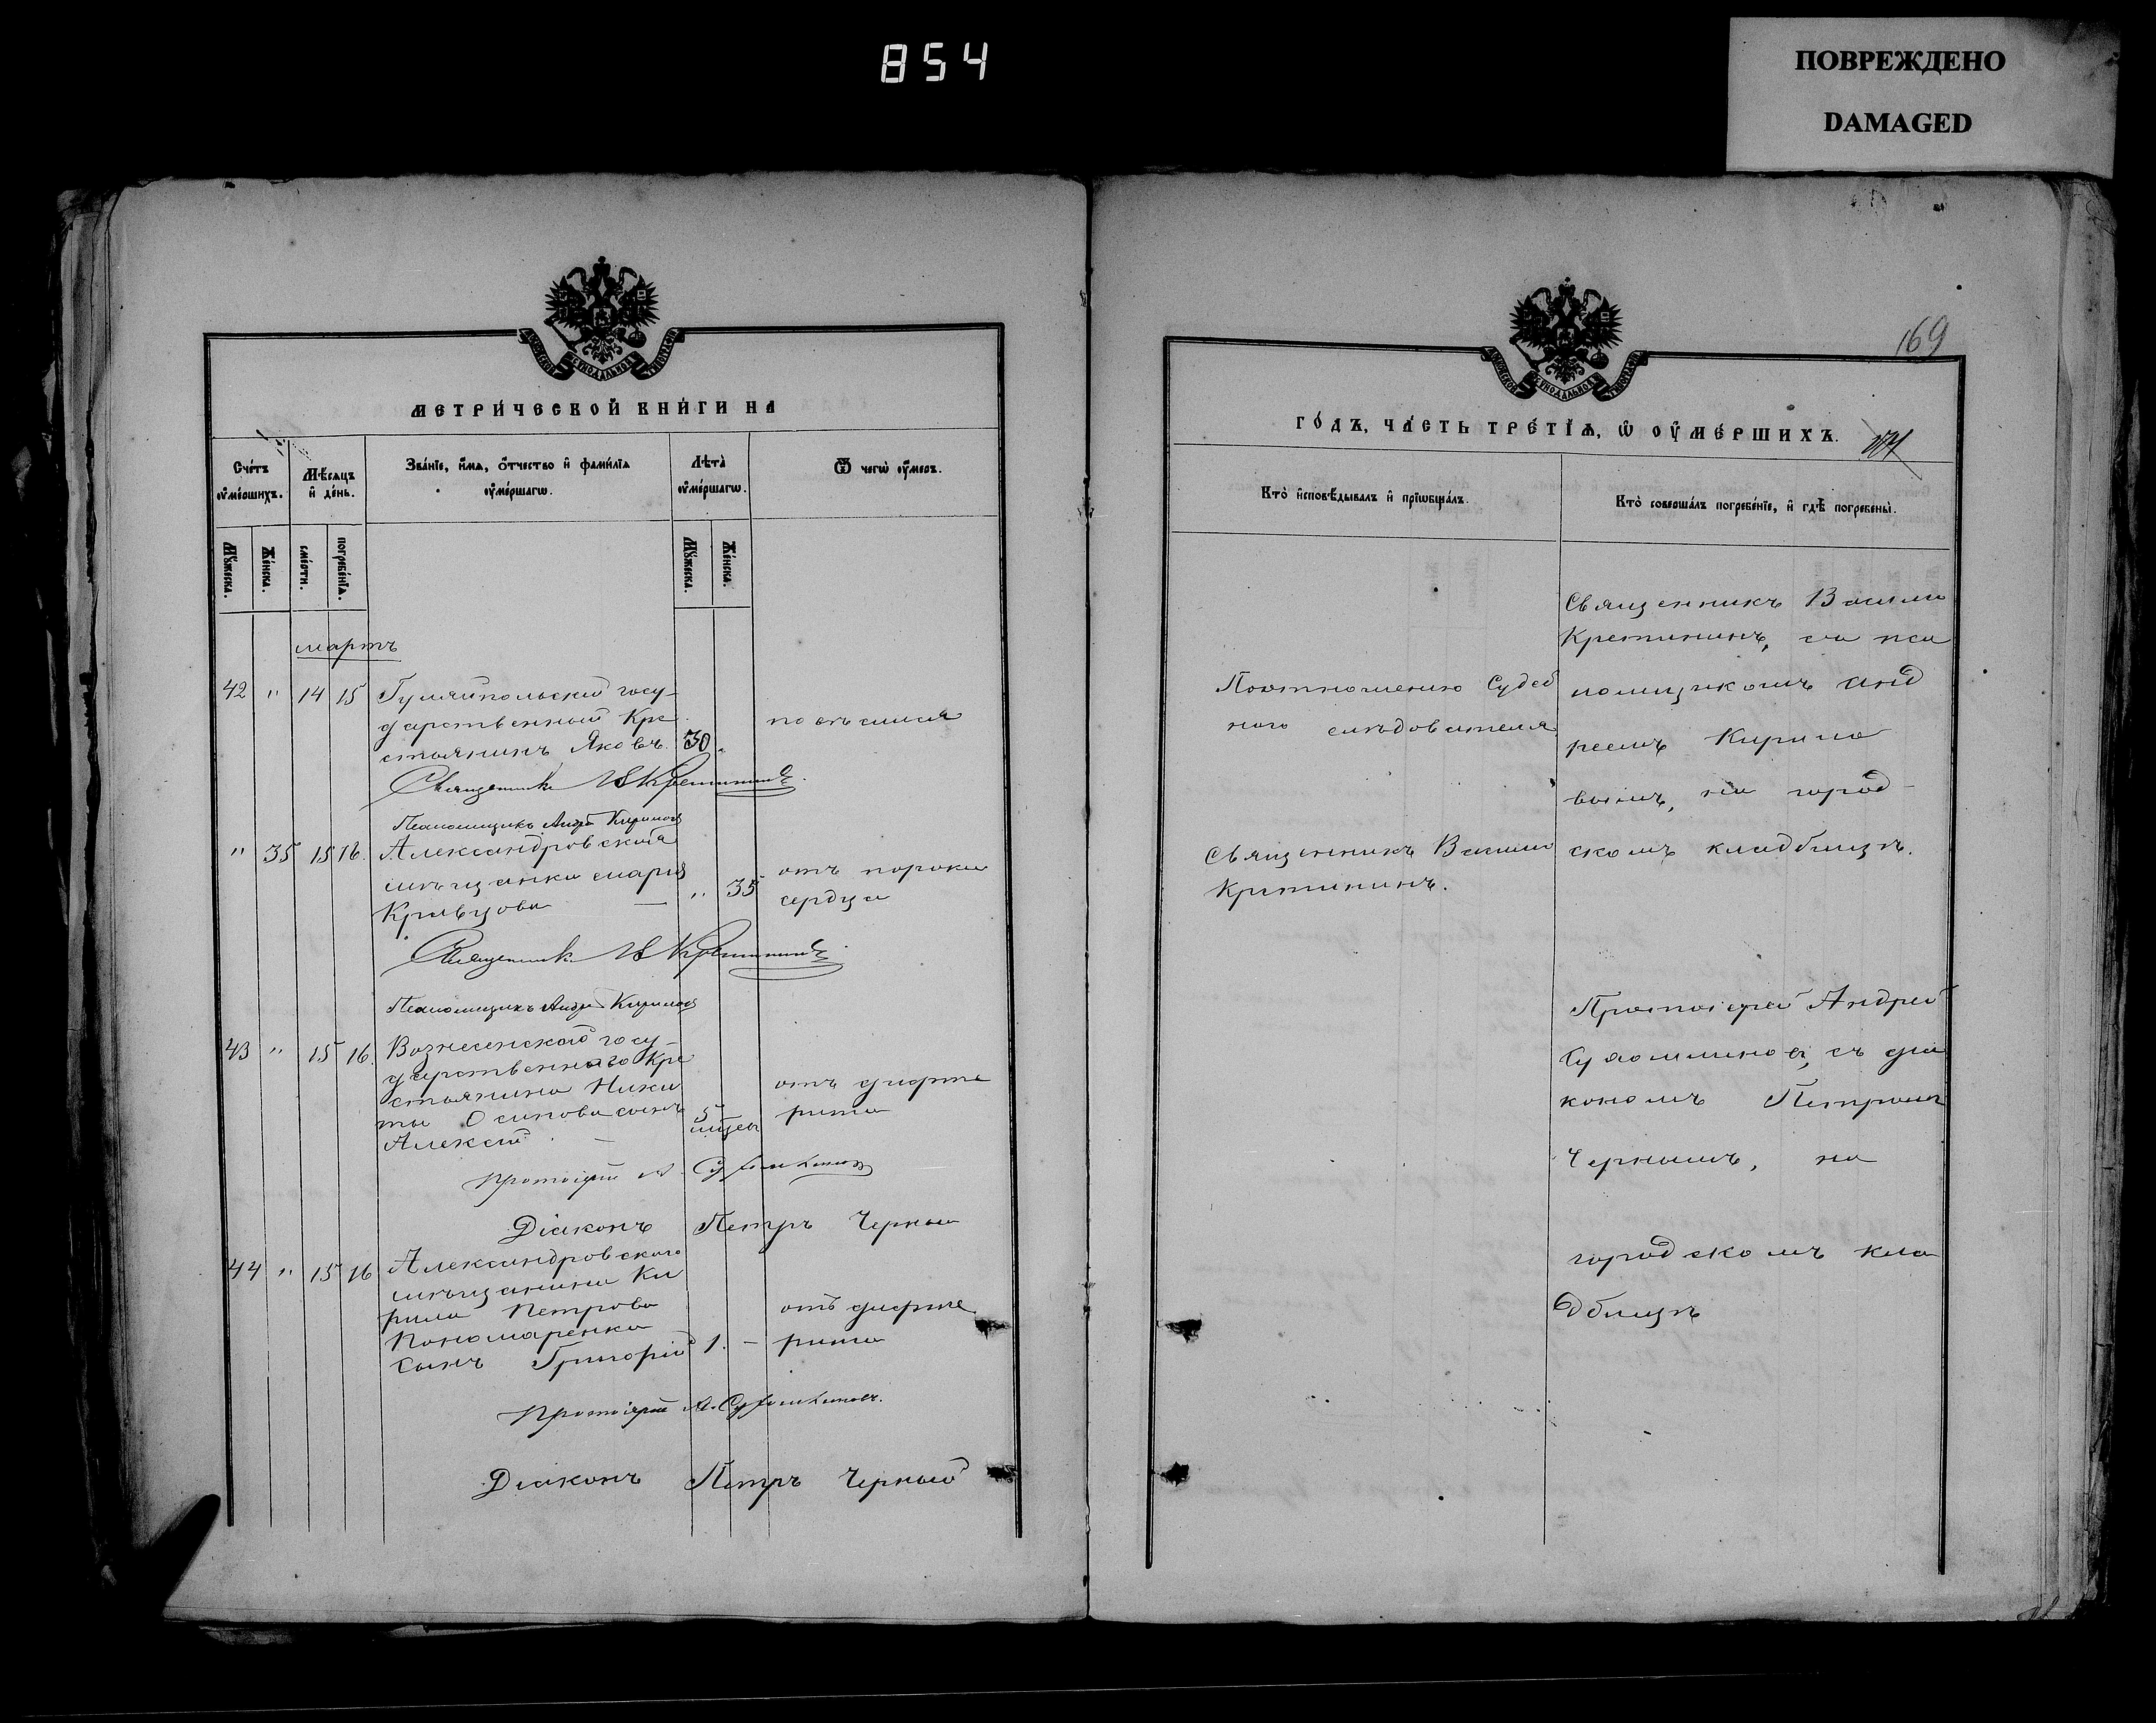 854
ПОВРЕЖДЕНО
DAMAGED
МЕТРИ́ЧЕСКОЙ КНИ́ГИ НА
Сче́тъ оу҆ме́ршихъ.
Мѣ́сяцъ и҆ де́нь.
Зва́нїе, и҆́мѧ, о҆́тчество и҆ фами́лїѧ
оу҆ме́ршагѡ.
Лѣ́та оу҆ме́ршагѡ.
Ѿ чегѡ̀ оу҆́меръ.
Мꙋ́жеска.
Же́нска.
сме́рти.
погребе́нїѧ.
Мꙋ́жеска.
Же́нска.
мартъ
42 " 14 15 Гуляйпольскій госу-
дарственный Кре
стьянинъ Яковъ. 30 "
Священникъ В Кретининъ
Псаломщикъ Андр Кирилов
" 35 15 16. Александровская
мѣщанка Марія
Кравцова — " 35 отъ порока
сердца
Священникъ В Кретининъ
Псаломщикъ Андр Кирилов
43 " 15 16. Вознесенскаго госу-
дарственнаго Кре
стьянина Ники
ты Осипова сынъ
Алексій — 5 мѣсец
отъ дифте
рита
Протоіерей А.
Діаконъ Петръ Черный
44 " 15 16 Александровскаго
мѣщанина Ки
рила Петрова
Пономаренка
сынъ Григорій 1. — отъ дифте
рита
Протоіерей А.
Діаконъ Петръ Черный
169
ГО́ДЪ, ЧА́СТЬ ТРЕ́ТЇѦ, Ѡ҆ ОУ҆МЕ́РШИХЪ.
Кто̀ и҆сповѣ́дывалъ и҆ прїѡбща́лъ.
Кто̀ соверша́лъ погребе́нїе, и҆ гдѣ̀ погребены̀.
По отношенію Судеб
наго слѣдователя
Священникъ Василій
Кретининъ, съ пса
ломщикомъ Анд
реемъ Кирило
вымъ, на город-
скомъ кладбищѣ.
Священникъ Василій
Кретининъ.
Протоіерей Андрей
съ діа
кономъ Петромъ
Чернымъ, на
городскомъ кла
дбищѣ